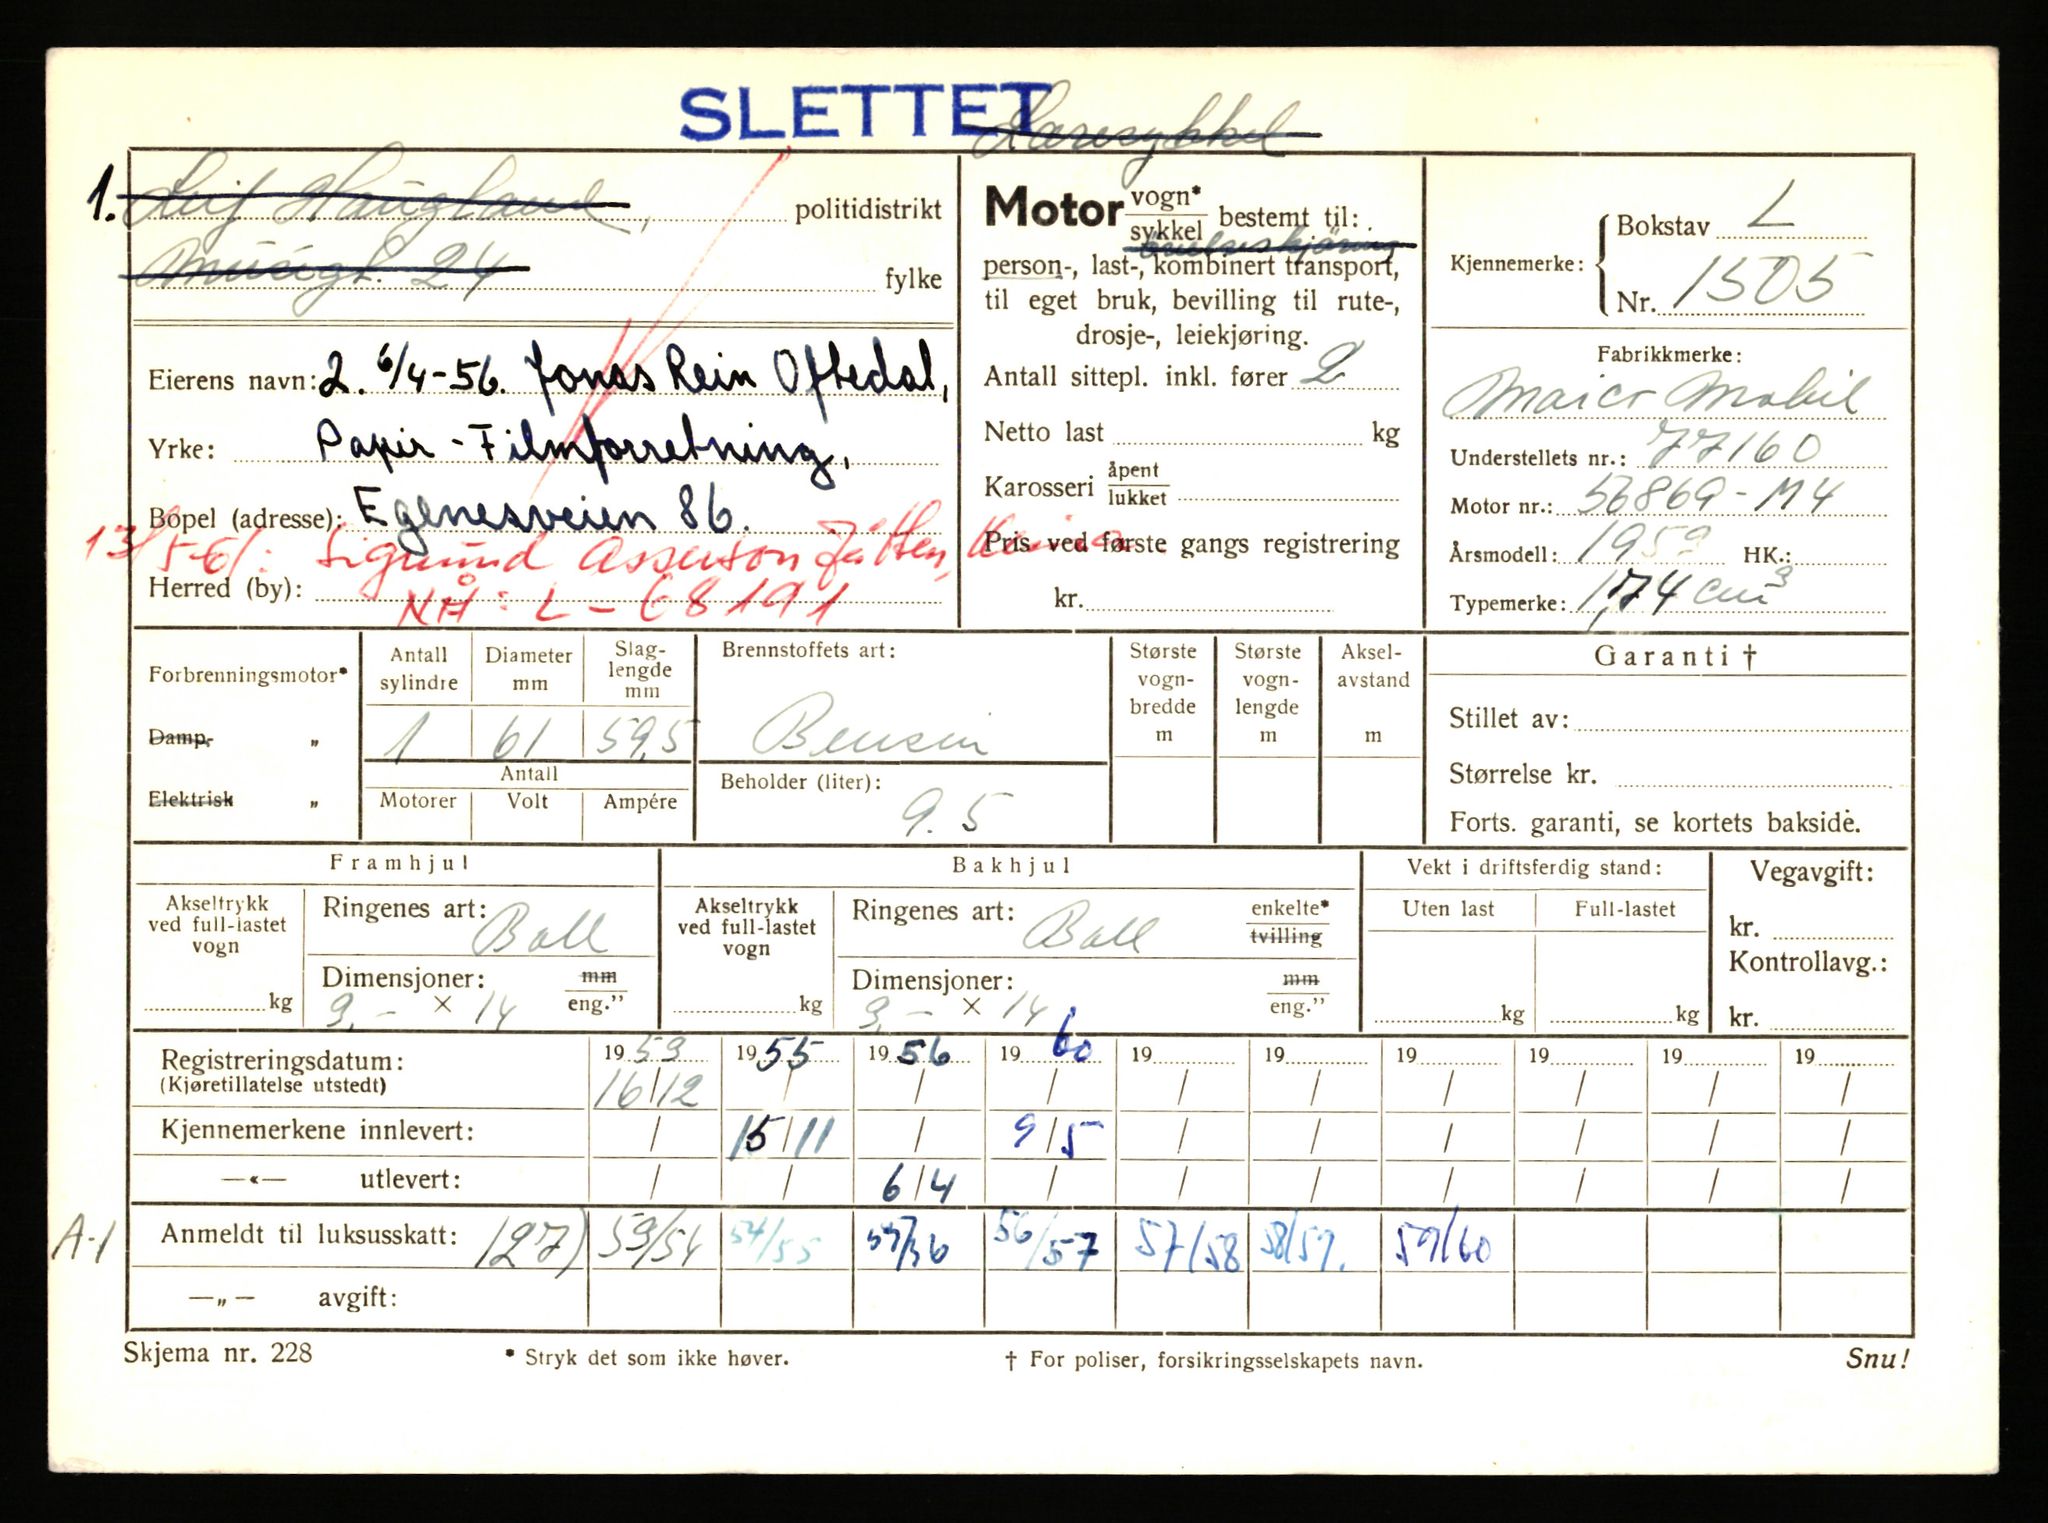 SLETTET
1. Leif Haugland, politidistrikt
24 fylke
Eierens navn: 2. 6/4-56. Jonas Rein Oftedal,
Yrke: Papir-Filmforretning,
Bopel (adresse): Egenesveien 86.
13/5-61: Sigmund Asserson Jåtten,
Herred (by): NÅ: L-68191
Motor vogn* sykkel bestemt til:
person-, last-, kombinert transport,
til eget bruk, bevilling til rute-,
drosje-, leiekjøring.
Antall sittepl. inkl. fører 2
Netto last kg
Karosseri åpent lukket
Pris ved første gangs registrering
kr.
Kjennemerke: Bokstav L
Nr. 1505
Fabrikkmerke:
Maico Mobil
Understellets nr.: 77160
Motor nr.: 56869-M4
Årsmodell: 1953 HK.:
Typemerke: 174 cm3
Forbrenningsmotor*
Damp- „
Elektrisk „
Antall sylindre 1
Diameter mm 61
Slaglengde mm 59,5
Antall
Motorer Volt Ampére
Brennstoffets art:
Bensin
Beholder (liter):
9.5
Største vognbredde m
Største vognlengde m
Akselavstand m
Garanti †
Stillet av:
Størrelse kr.
Forts. garanti, se kortets bakside.
Framhjul
Akseltrykk ved full-lastet vogn kg
Ringenes art: Ball
Dimensjoner: mm eng."
3,- × 14
Bakhjul
Akseltrykk ved full-lastet vogn kg
Ringenes art: Ball enkelte* tvilling
Dimensjoner: mm eng."
3,- × 14
Vekt i driftsferdig stand:
Uten last Full-lastet
kg kg
Vegavgift:
kr.
Kontrollavg.:
kr.
Registreringsdatum: 1953 1955 1956 1960 19 19 19 19 19 19
(Kjøretillatelse utstedt) 16/12 / / / / / / / / /
Kjennemerkene innlevert: / 15/11 / 9/5 / / / / / /
—«— utlevert: / / 6/4 / / / / / / /
A-1 Anmeldt til luksusskatt: 127) 53/54 54/55 55/56 56/57 57/58 58/59. 59/60
—„— avgift:
Skjema nr. 228 * Stryk det som ikke høver. † For poliser, forsikringsselskapets navn. Snu!